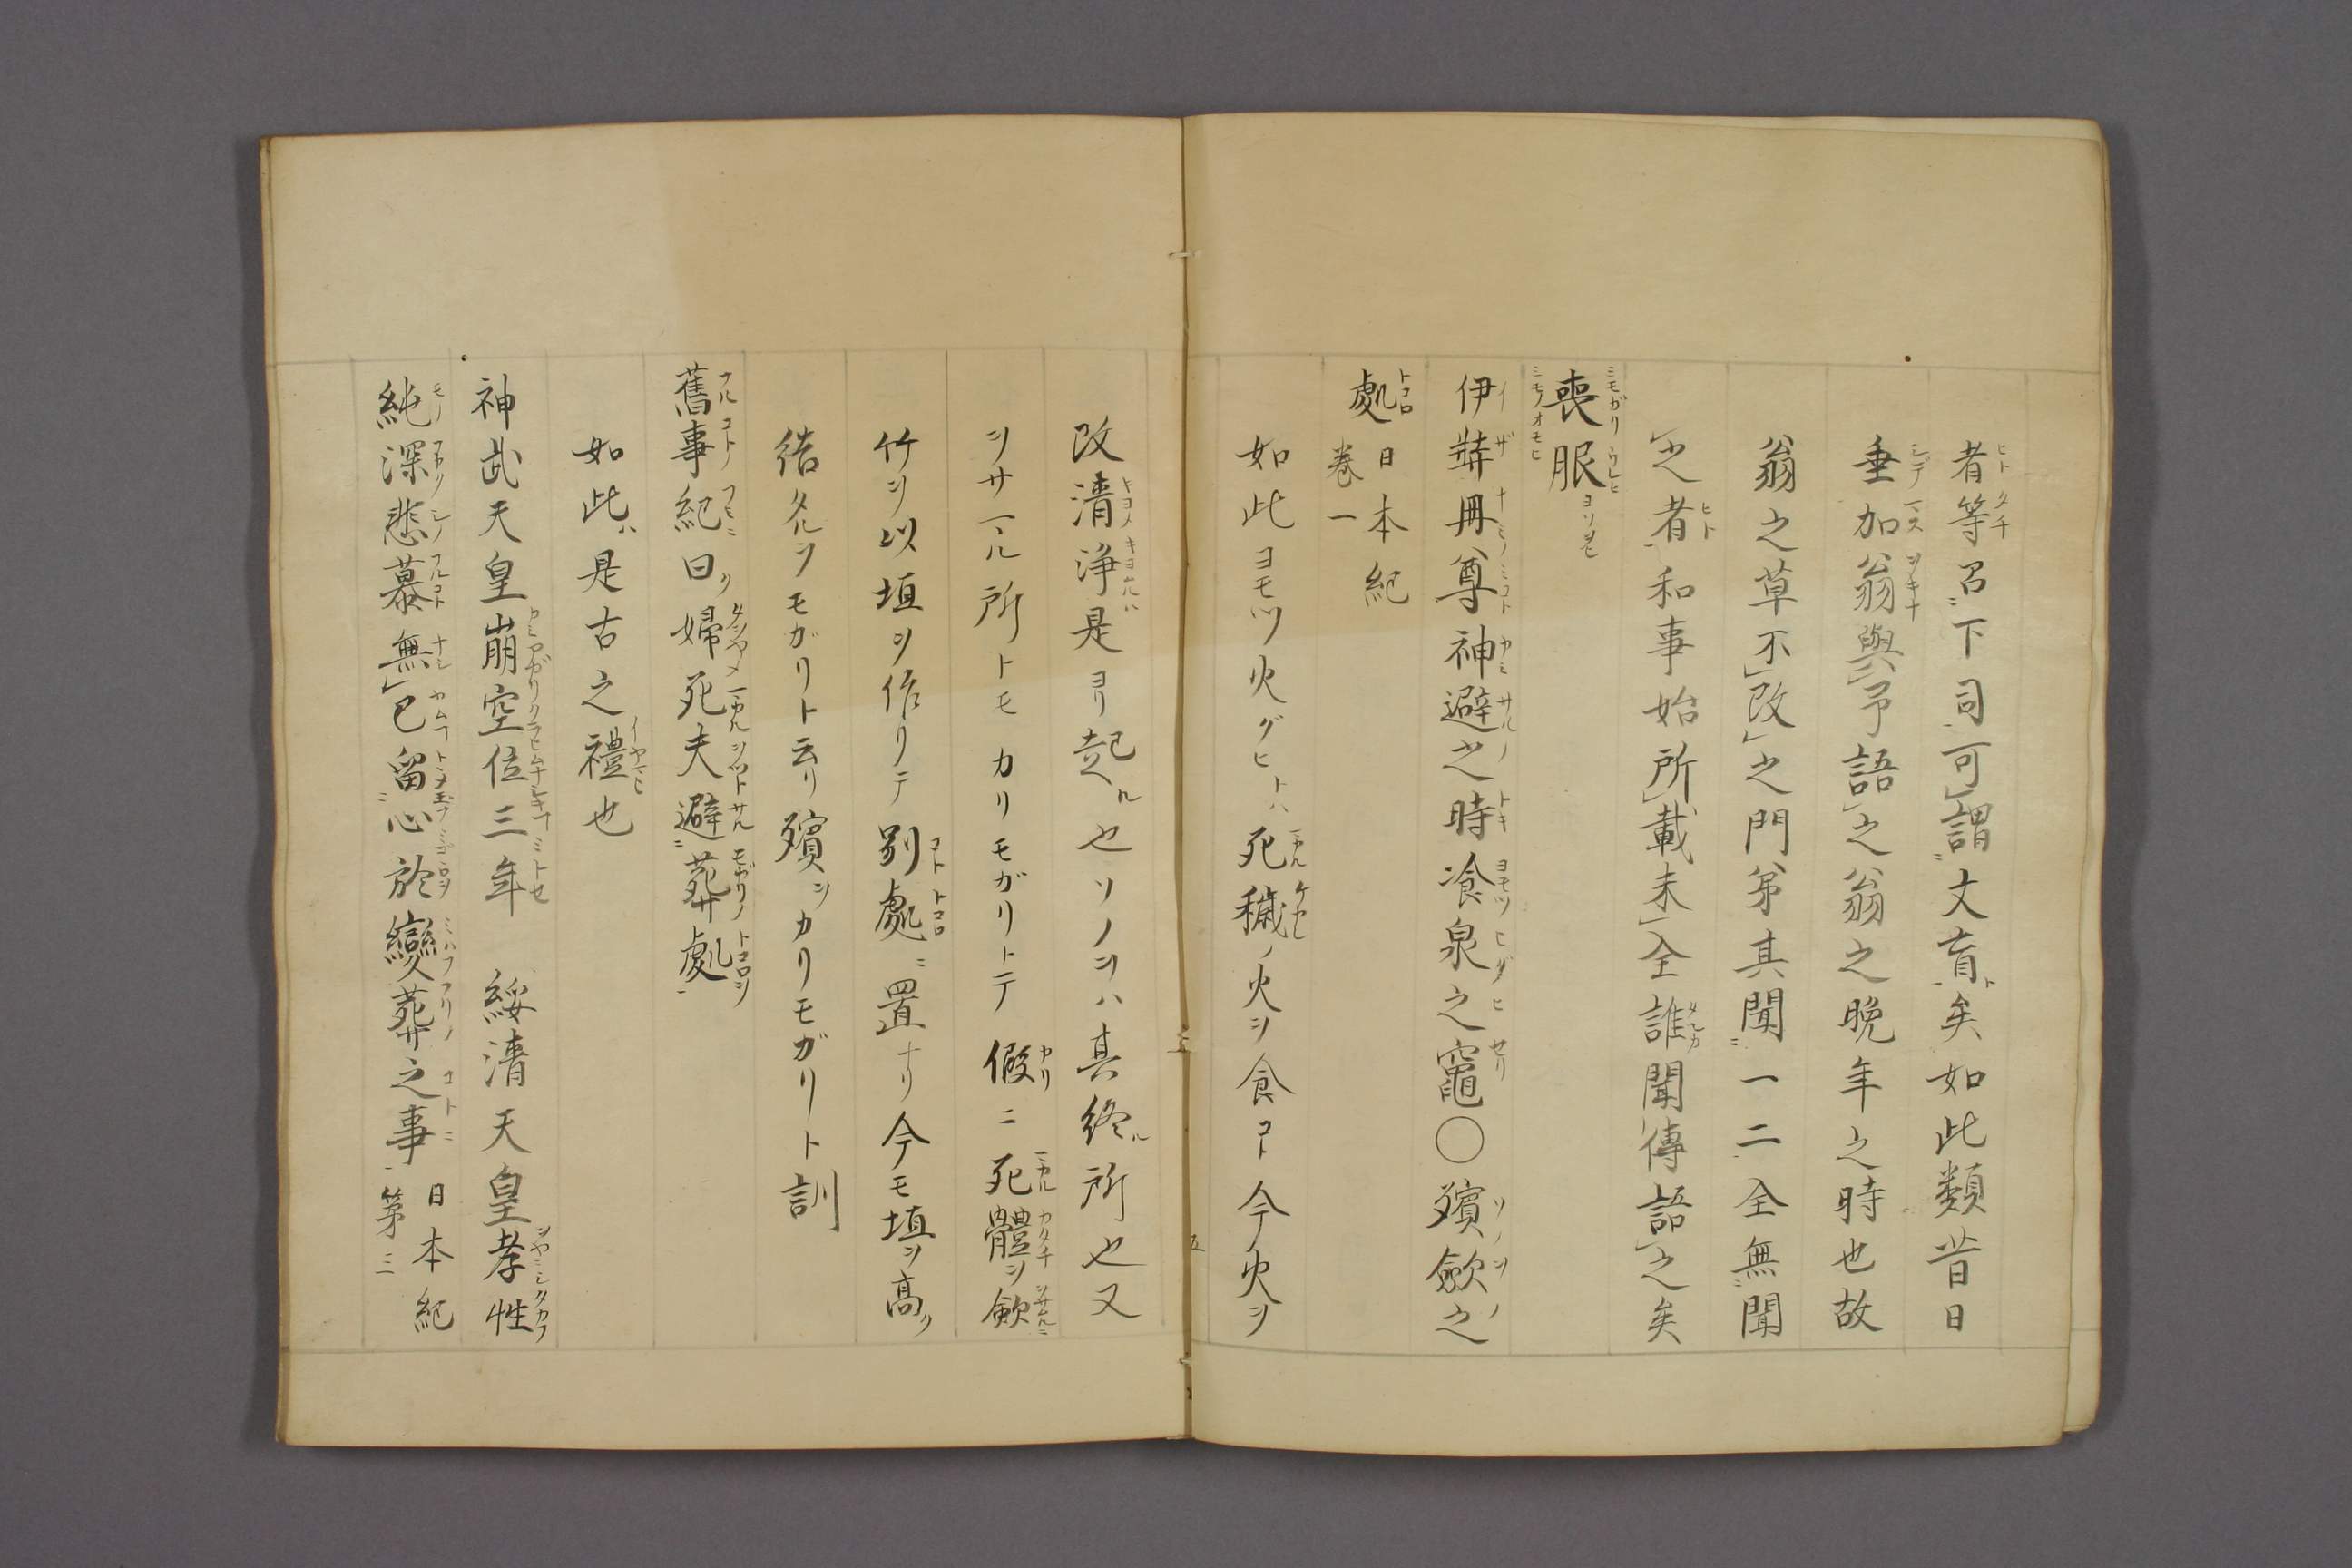 者等召下司可謂文盲矣如此類昔日
垂加翁與予語之翁之晩年之時也故
翁之草不改之門弟其聞一二全無聞
之者和事始所載未全誰聞傳語之矣
喪服
伊弉冉尊神避之時飡泉之竈〇殯斂之
處 日本紀
卷一
如此ヨモツ火グヒトハ死穢ノ火ヲ食コト今火ヲ
改清浄是ヨリ起ル也ソノヲハ其終ル所也又
ヲサマル所トモカリモガリトテ假ニ死體ヲ歛
竹ヲ以垣ヲ作リテ別處ニ置ナリ今モ垣ヲ高ク
結タルヲモガリト云リ殯ヲカリモガリト訓
舊事紀曰ク婦死夫避葬處
如此ハ是古之禮也
神武天皇崩空位三年 綏清天皇孝性
純深悲慕無已留心於變葬之事 日本紀
第三
五